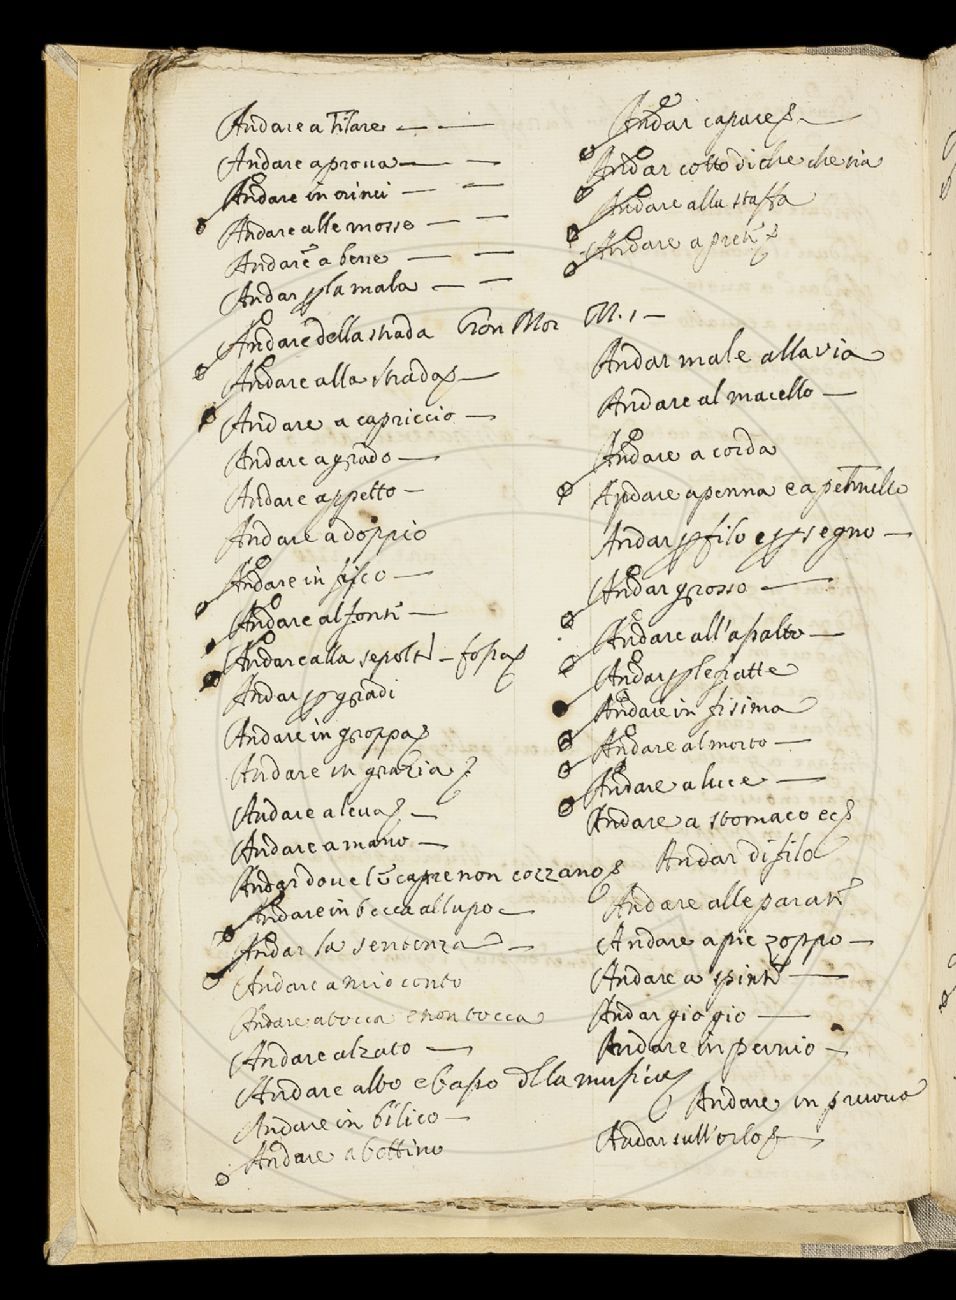 Andare a
Andare a proua
Andare in
Andare alle mosse
Andare a bere
Andar p la mala
Andare della strada
Andare alla strada
Andare a capriccio
Andare a grado
Andare appetto
Andare a doppio
Andare in fisco
Andare al fonte
Andare alla fossa
Andar p gradi
Andare in groppa
Andare in grazia
Andare a leua
Andare a mano
Andar doue le capre non cozzano
Andare in bocca al lupo
Andar la sentenza
Andare a mio conto
Andare a bocca e non bocca
Andare alzato
Andare alto e basso della musica
Andare in bilico
Andare a bottino
Andar
Andar cotto di che che sia
Andare alla staffa
Andare a
Andar male alla via
Andare al macello
Andare a corda
Andare a penna e a pennello
Andar p filo e p segno
Andar grosso
Andare all'asalto
Andar p le fratte
Andare in fisima
Andare al morto
Andare a luce
Andare a stomaco
Andar di filo
Andare alle parate
Andare a pie zoppo
Andare a spinte
Andar gio gio
Andare in pernio
Andare in pruoua
Andar sull'orlo